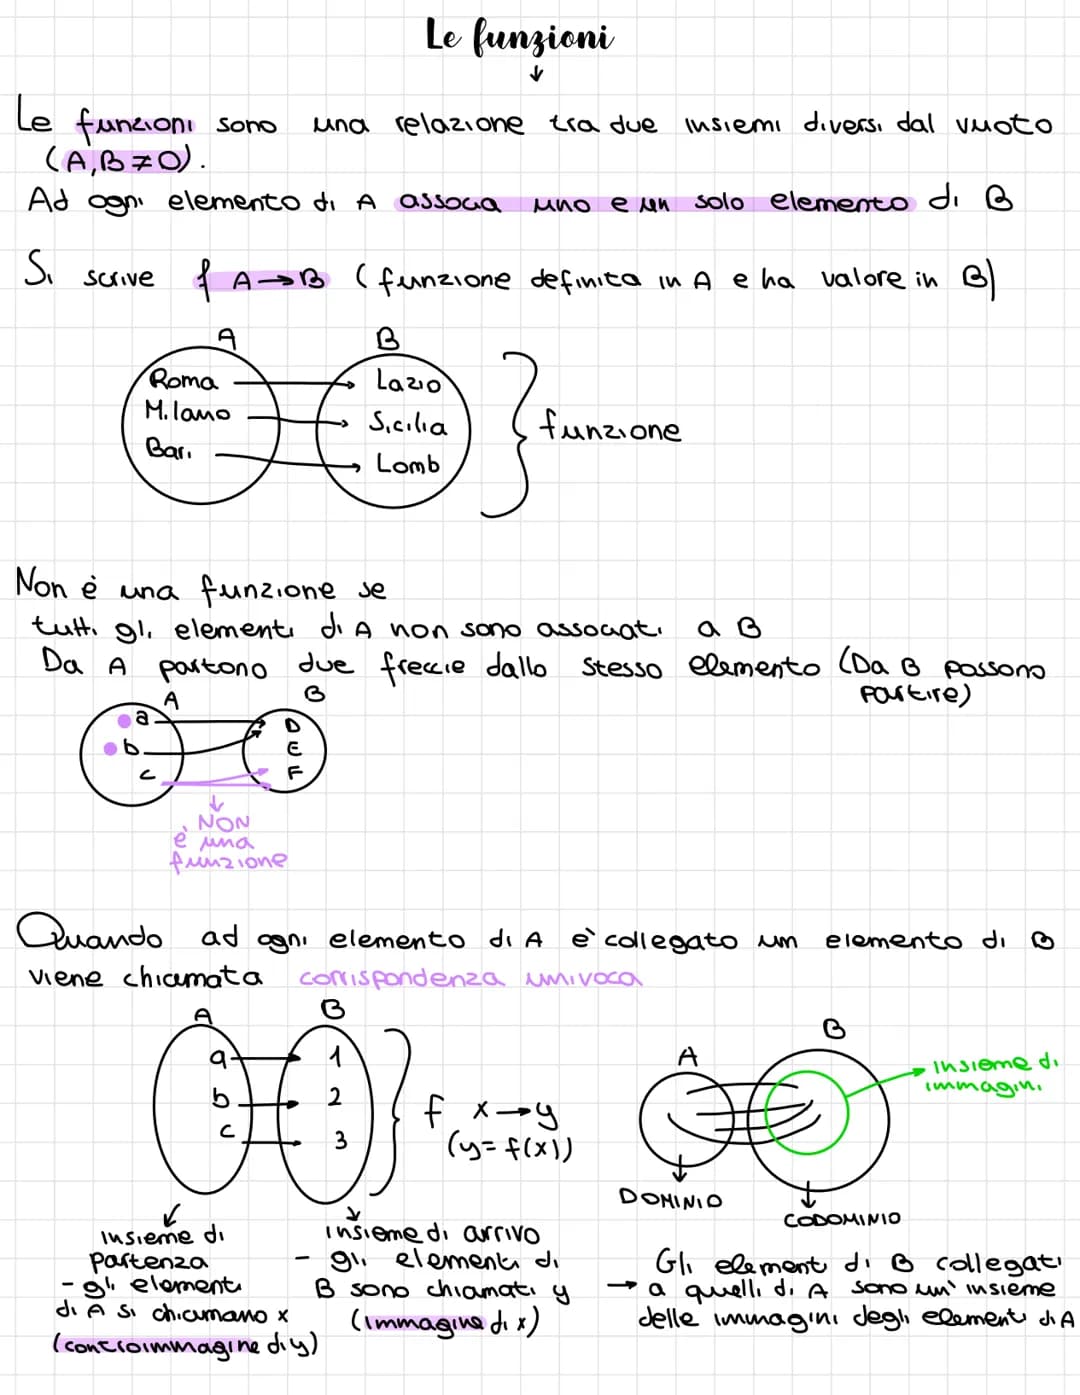 Le funzioni
Le funzioni sono una relazione tra due insiemi diversi dal vuoto
(A,B≠0).
Ad ogni elemento di A associa uno e un solo elemento di B
Si scrive f A→B (funzione definita in A e ha valore in B)
A B
Roma Lazio
Milano Sicilia
Bari Lomb
funzione
Non è una funzione se
tutti gli elementi di A non sono associati a B
Da A partono due freccie dallo stesso elemento (Da B possono
partire)
A B
a D
b E
c F
NON
è una
funzione
Quando ad ogni elemento di A è collegato un elemento di B
viene chiamata corrispondenza univoca
A B
a 1
b 2
c 3
f x→y
(y=f(x))
A B
insieme di
immagini
DOMINIO
CODOMINIO
insieme di
partenza
- gli elementi
di A si chiamano x
(controimmagine di y)
insieme di arrivo
- gli elementi di
B sono chiamati y
(immagine di x)
Gli elementi di B collegati
→ a quelli di A sono un' insieme
delle immagini degli elementi di A